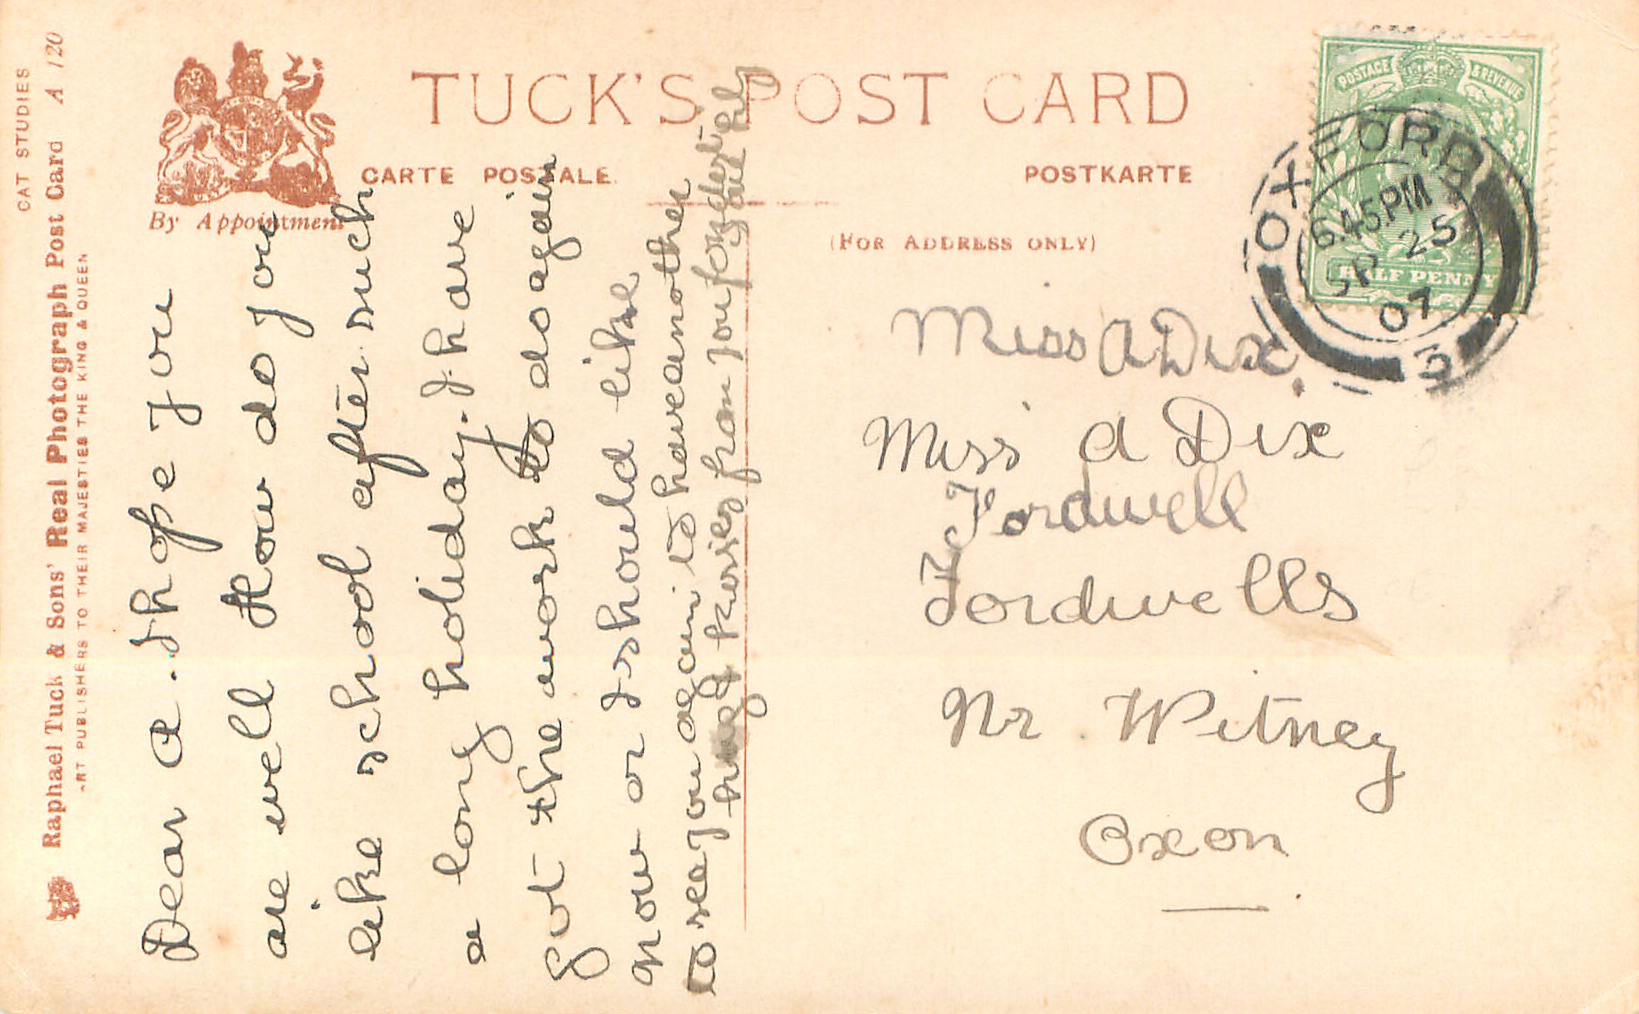 CAT STUDIES
Raphael Tuck & Sons' Real Photograph Post Card A 120
ART PUBLISHERS TO THEIR MAJESTIES THE KING & QUEEN
By Appointment
TUCK'S POST CARD
CARTE POSTALE.
POSTKARTE
(FOR ADDRESS ONLY)
POSTAGE & REVENUE
HALF PENNY
OXFORD
6.45 PM
SP 25
07
3
Dear A. I hope you
are well How do you
like school after such
a long holiday. I have
got the work to do again
now or I should like
to see you again to have another
kisses from your
Miss A Dix.
Miss A Dix
Fordwell
Fordwells
Nr Witney
Oxon